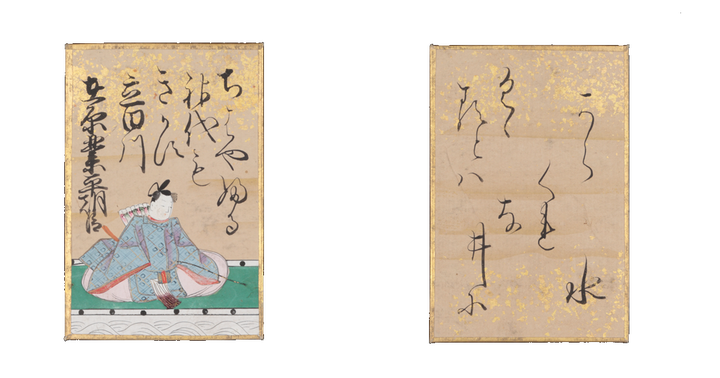 ちはやふる
神代も
きかす
立田川
在原業平朝臣
から
くれ
な
井に
水
くゝ
るとは